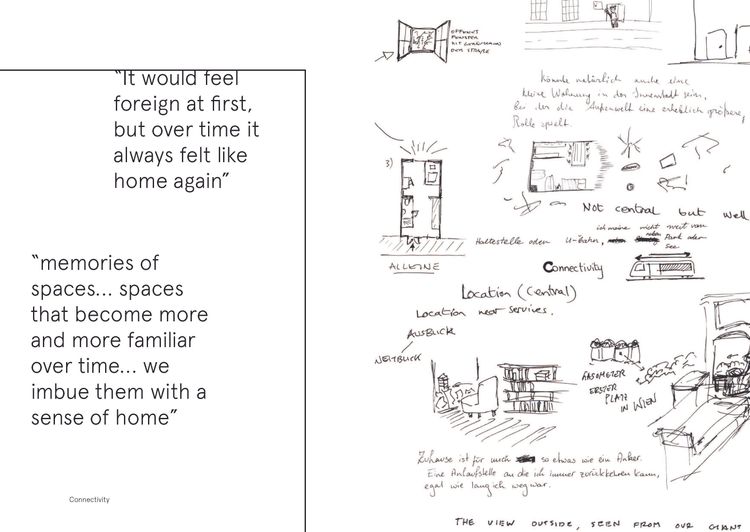 “It would feel
foreign at first,
but over time it
always felt like
home again”
“memories of
spaces... spaces
that become more
and more familiar
over time... we
imbue them with a
sense of home”
Connectivity
FENSTER
DER STRASSE
Könnte natürlich auch eine
kleine Wohnung in der Innenstadt sein,
bei der die Außenwelt eine erheblich größere,
Rolle spielt.
3)
NOT CENTRAL but well
ich meine nicht weit von
Haltestelle oder U-Bahn, Park oder
See
ALLEINE
Connectivity
LOCATION (CENTRAL)
LOCATION near services.
AUSBLICK
WEITBLICK
GASOMETER
ERSTER
PLATZ
IN WIEN
Zuhause ist für mich so etwas wie ein Anker.
Eine Anlaufstelle an die ich immer zurückkehren kann,
egal wie lang ich weg war.
THE VIEW OUTSIDE, SEEN FROM OUR GIANT